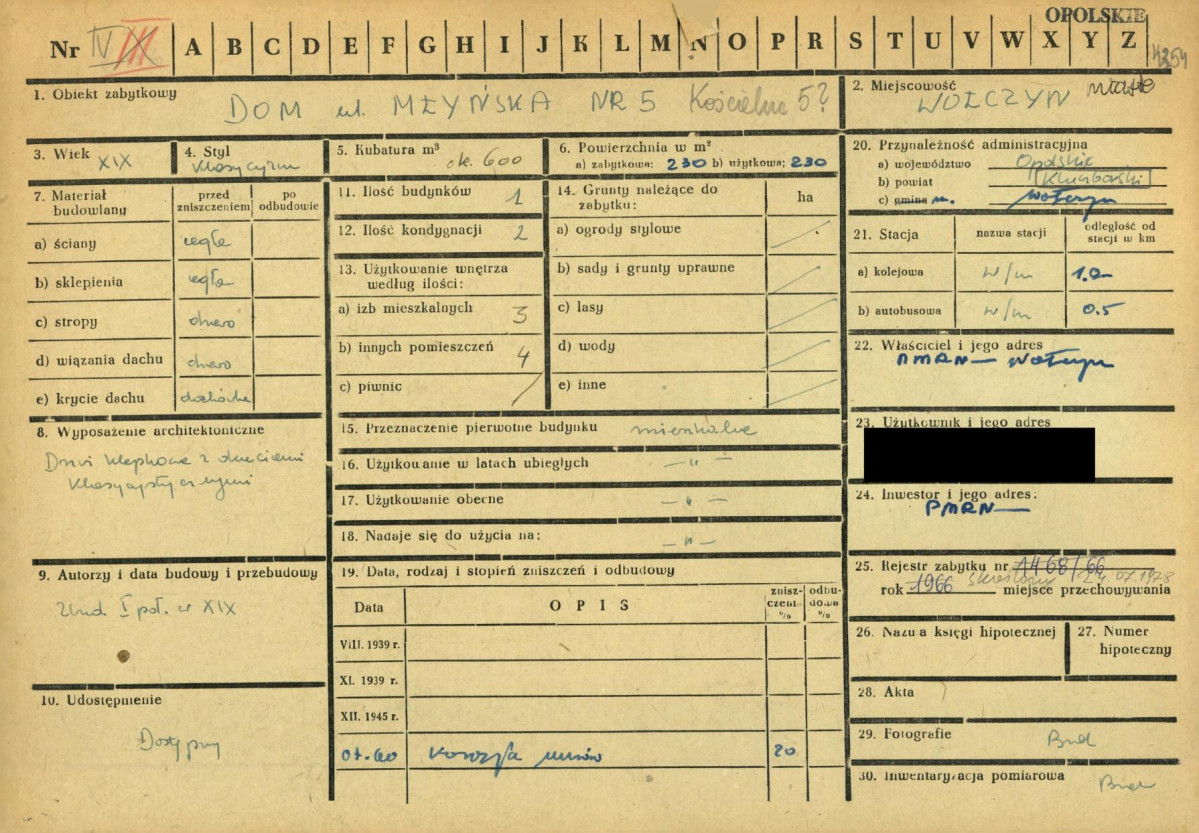 OPOLSKIE
Nr IV III A B C D E F G H I J K L M N O P R S T U V W X Y Z
4254
1. Obiekt zabytkowy DOM ul. MŁYŃSKA NR 5 Kościelna 5?
2. Miejscowość WOŁCZYN miasto
3. Wiek XIX
4. Styl klasycyzm
5. Kubatura m³ ok. 600
6. Powierzchnia w m²
a) zabytkowa: 230 b) użytkowa: 230
20. Przynależność administracyjna
a) województwo Opolskie
b) powiat Kluczborski
c) gmina m. Wołczyn
7. Materiał budowlany
przed zniszczeniem
po odbudowie
a) ściany cegła
b) sklepienia cegła
c) stropy drewno
d) wiązania dachu drewno
e) krycie dachu dachówka
11. Ilość budynków 1
12. Ilość kondygnacji 2
13. Użytkowanie wnętrza
według ilości:
a) izb mieszkalnych 3
b) innych pomieszczeń 4
c) piwnic /
14. Grunty należące do
zabytku:
ha
a) ogrody stylowe
b) sady i grunty uprawne
c) lasy
d) wody
e) inne
21. Stacja
nazwa stacji
odległość od
stacji w km
a) kolejowa w/m 1.2
b) autobusowa w/m 0.5
22. Właściciel i jego adres
PMRN — Wołczyn
8. Wyposażenie architektoniczne
Drzwi klepkowe z okuciami
klasycystycznymi
15. Przeznaczenie pierwotne budynku mieszkalne
16. Użytkowanie w latach ubiegłych — " —
17. Użytkowanie obecne — " —
18. Nadaje się do użycia na: — " —
23. Użytkownik i jego adres
24. Inwestor i jego adres:
PMRN —
9. Autorzy i data budowy i przebudowy
Zbud. I poł. w XIX
19. Data, rodzaj i stopień zniszczeń i odbudowy
Data
OPIS
znisz-
czenia
%
odbu-
dowa
%
VIII. 1939 r.
XI. 1939 r.
XII. 1945 r.
07.60 Korozja murów 20
25. Rejestr zabytku nr 1468/66
skreślony 24.07.1978
rok 1966 miejsce przechowywania
26. Nazwa księgi hipotecznej
27. Numer
hipoteczny
28. Akta
29. Fotografie Brak
30. Inwentaryzacja pomiarowa Brak
10. Udostępnienie
Dostępny